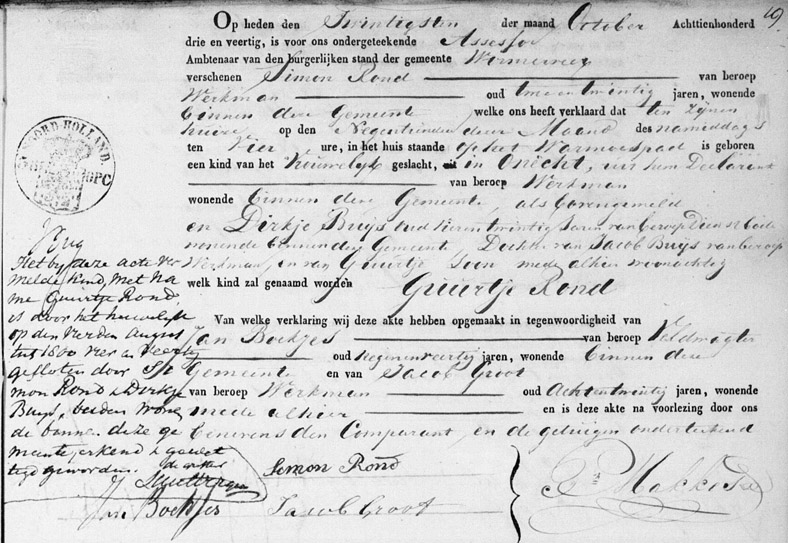 19.
Op heden den Twintigsten der maand October Achttienhonderd
drie en veertig, is voor ons ondergeteekende Assessor
Ambtenaar van den burgerlijken stand der gemeente Wormerveer
verschenen Simon Rond van beroep
Werkman oud twee en twintig jaren, wonende
binnen deze Gemeente welke ons heeft verklaard dat ten zijnen
huize op den Negentienden dezer Maand des namiddags
ten Vier ure, in het huis staande op het Warmoespad is geboren
een kind van het Vrouwelijk geslacht, uit in Onecht, uit hem Declarant
van beroep Werkman
wonende binnen deze Gemeente, als bovengemeld
en Dirkje Buijs oud twintig Jaren van beroep Dienstbode
wonende binnen deze Gemeente, Dochter van Jacob Buijs van beroep
Werkman, en van Guurtje mede alhier woonachtig
welk kind zal genaamd worden Guurtje Rond
Van welke verklaring wij deze akte hebben opgemaakt in tegenwoordigheid van
Jan Boekjes van beroep Veldwagter
oud Negenenveertig jaren, wonende binnen deze
Gemeente en van Jacob Groot
van beroep Werkman oud Achtentwintig jaren, wonende
mede alhier en is deze akte na voorlezing door ons
benevens den Comparant, en de getuigen onderteekend
NOORD-HOLLAND
Het bij deze acte ver
melde kind, met na
me Guurtje Rond,
is door het huwelijk
op den Vierden Augus
tus 1800 vier en veertig
gesloten door Si
mon Rond & Dirkje
Buijs, beiden wone
de binnen deze ge
meente, erkend & gewet
tigd geworden.
Simon Rond
Jan Boekjes
Jacob Groot